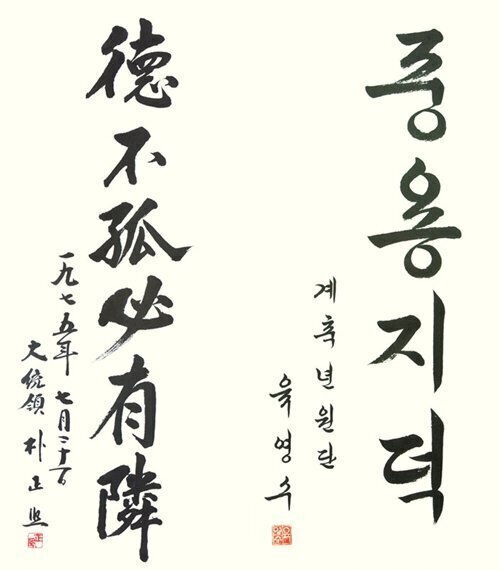 중용지덕
계축년원단
육영수
德不孤必有隣
一九七五年 七月二十一日
大統領 朴正熙